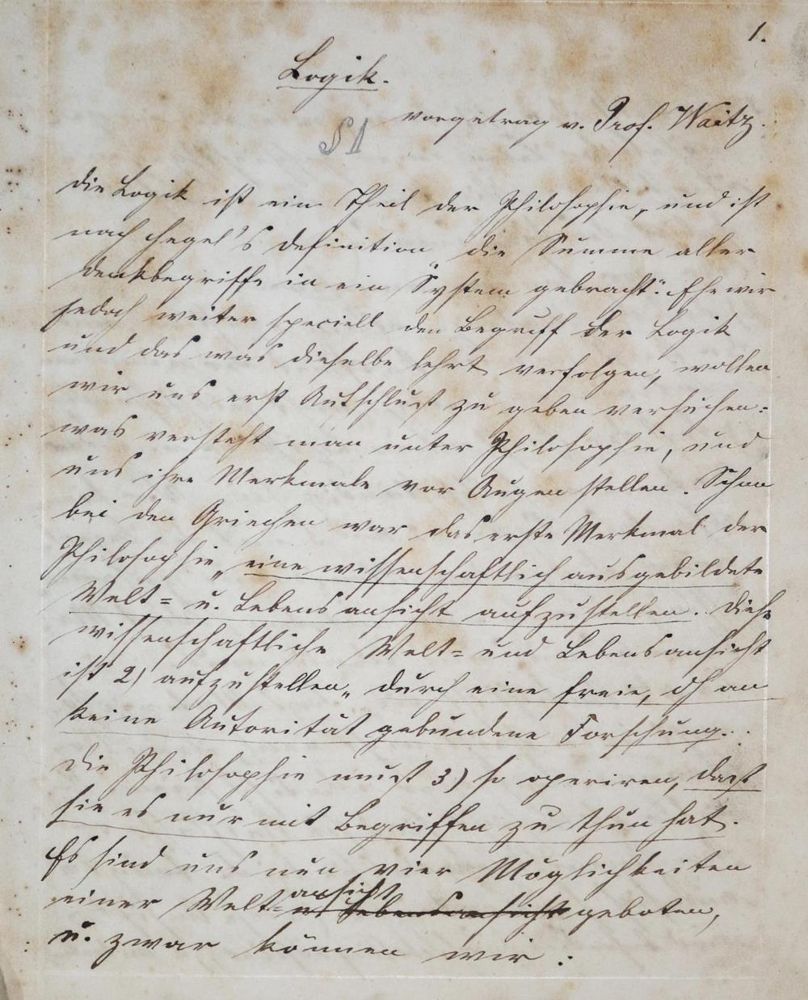 1.
Logik.
vorgetragen v. Prof. Waitz.
§ 1
Die Logik ist ein Theil der Philosophie, und ist
nach Hegel's Definition „die Summe aller
Denkbegriffe in ein System gebracht." Ehe wir
jedoch weiter speciell den Begriff der Logik
und das was dieselbe lehrt verfolgen, wollen
wir uns erst Aufschluß zu geben versuchen:
was versteht man unter Philosophie, und
uns ihre Merkmale vor Augen stellen. Schon
bei den Griechen war das erste Merkmal der
Philosophie „eine wissenschaftlich ausgebildete
Welt= u. Lebensansicht aufzustellen. Diese
wissenschaftliche Welt= und Lebensansicht
ist 2) aufzustellen „durch eine freie, an
keine Autorität gebundene Forschung.
Die Philosophie muß 3) so operiren, daß
sie es nur mit Begriffen zu thun hat.
Es sind uns nun vier Möglichkeiten
einer Welt=ansicht u. Lebensansicht geboten,
u. zwar können wir: